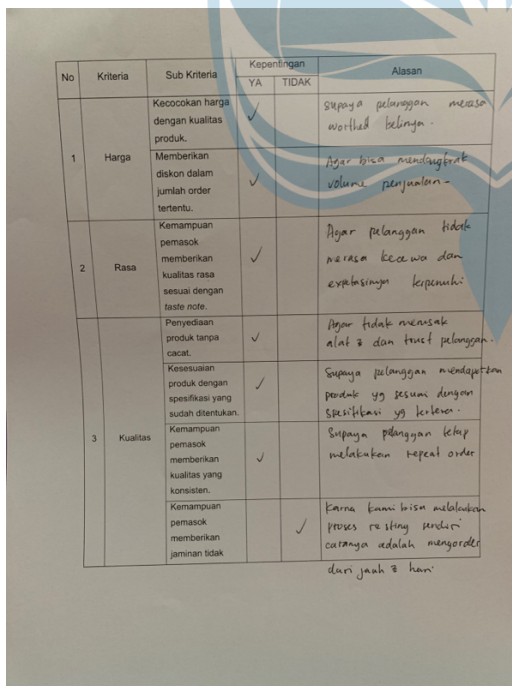 No Kriteria Sub Kriteria Kepentingan Alasan
YA TIDAK
1 Harga
Kecocokan harga
dengan kualitas
produk.
supaya pelanggan merasa
worthed belinya.
Memberikan
diskon dalam
jumlah order
tertentu.
Agar bisa mendongkrak
volume penjualan -
2 Rasa
Kemampuan
pemasok
memberikan
kualitas rasa
sesuai dengan
taste note.
Agar pelanggan tidak
merasa kecewa dan
terpenuhi
3 Kualitas
Penyediaan
produk tanpa
cacat.
Agar tidak merusak
alat 2 dan trust pelanggan.
Kesesuaian
produk dengan
spesifikasi yang
sudah ditentukan.
Supaya pelanggan mendapatkan
produk yg sesuai dengan
spesifikasi yg
Kemampuan
pemasok
memberikan
kualitas yang
konsisten.
Supaya pelanggan tetap
melakukan repeat order
Kemampuan
pemasok
memberikan
jaminan tidak
Karna kami bisa melakukan
proses resting sendiri
caranya adalah mengorder
dari jauh 2 hari